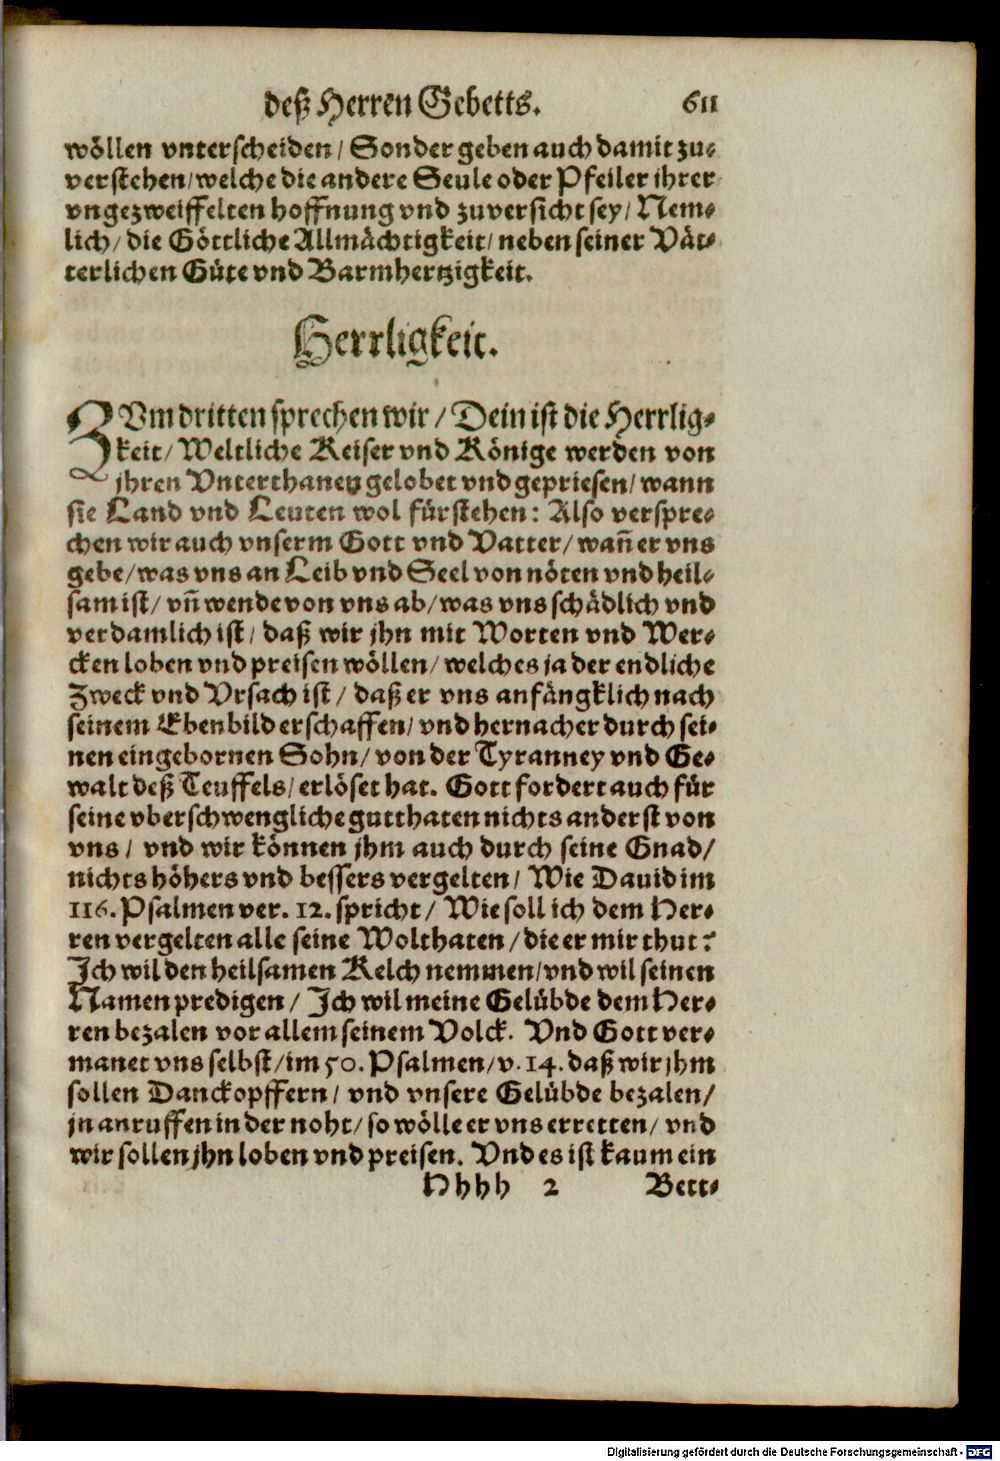 deß Herren Gebetts. 611
wöllen vnterscheiden/ Sonder geben auch damit zu-
verstehen/ welche die andere Seule oder Pfeiler jhrer
vngezweiffelten hoffnung vnd zuversicht sey/ Nem-
lich/ die Göttliche Allmächtigkeit/ neben seiner Vät-
terlichen Güte vnd Barmhertzigkeit.
Herrligkeit.
ZVm dritten sprechen wir/ Dein ist die Herrlig-
keit/ Weltliche Keiser vnd Könige werden von
jhren Vnterthanen gelobet vnd gepriesen/ wann
sie Land vnd Leuten wol fürstehen: Also verspre-
chen wir auch vnserm Gott vnd Vatter/ wañ er vns
gebe/ was vns an Leib vnd Seel von nöten vnd heil-
sam ist/ vñ wende von vns ab/ was vns schädlich vnd
verdamlich ist/ daß wir jhn mit Worten vnd Wer-
cken loben vnd preisen wöllen/ welches ja der endliche
Zweck vnd Vrsach ist/ daß er vns anfängklich nach
seinem Ebenbild erschaffen/ vnd hernacher durch sei-
nen eingebornen Sohn/ von der Tyranney vnd Ge-
walt deß Teuffels/ erlöset hat. Gott fordert auch für
seine vberschwengliche gutthaten nichts anderst von
vns/ vnd wir können jhm auch durch seine Gnad/
nichts höhers vnd bessers vergelten/ Wie Dauid im
116. Psalmen ver. 12. spricht/ Wie soll ich dem Her-
ren vergelten alle seine Wolthaten/ die er mir thut?
Ich wil den heilsamen Kelch nemmen/ vnd wil seinen
Namen predigen/ Ich wil meine Gelübde dem Her-
ren bezalen vor allem seinem Volck. Vnd Gott ver-
manet vns selbst/ im 50. Psalmen/ v. 14. daß wir jhm
sollen Danckopffern/ vnd vnsere Gelübde bezalen/
jn anruffen in der noht/ so wölle er vns erretten/ vnd
wir sollen jhn loben vnd preisen. Vnd es ist kaum ein
Hhhh 2 Bett-
Digitalisierung gefördert durch die Deutsche Forschungsgemeinschaft - DFG